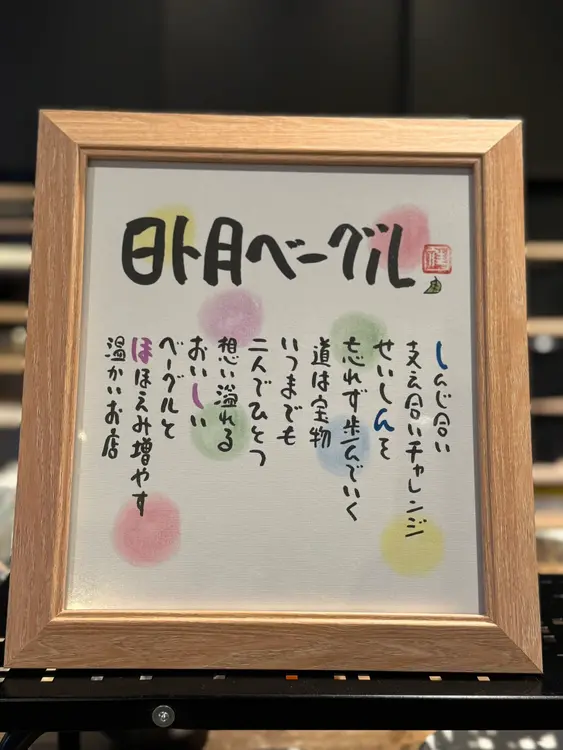 日ト月ベーグル
しんじ合い
支え合いチャレンジ
せいしんを
忘れず歩んでいく
道は宝物
いつまでも
二人でひとつ
想い溢れる
おいしい
ベーグルと
ほほえみ増やす
温かいお店